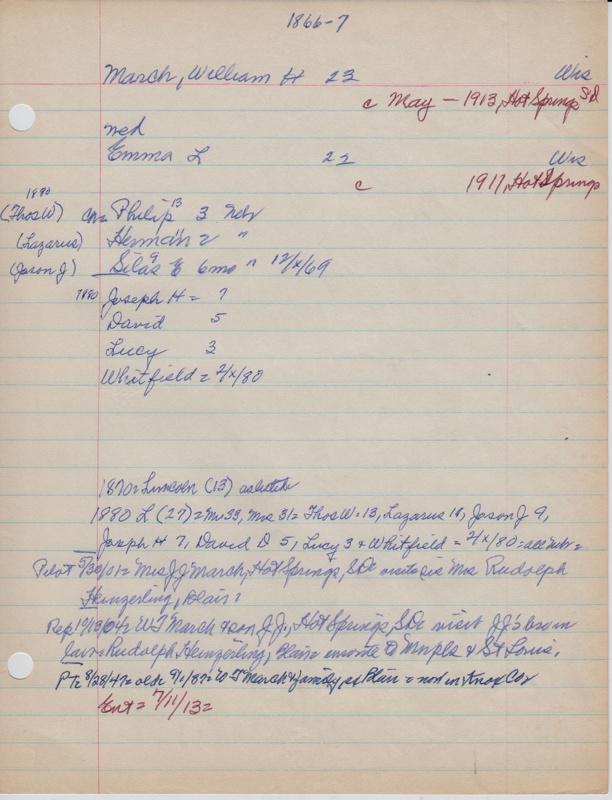 1866-7
March, William H 23 Wis
c May - 1913, Hot Springs SD
wed
Emma L 22 Wis
c 1917, Hot Springs
1880
(Thos W) Philip 13 3 Nebr
(Lazarus) Herman 2 "
(Jason J) Silas E 9 6 mo " 12/x/69
1880 Joseph H = 7
David 5
Lucy 3
Whitfield = 2/x/80
1870 = Lincoln (13) as
1880 L (27) = Mr 33, Mrs 31 = Thos W = 13, Lazarus 11, Jason J 9,
Joseph H 7, David D 5, Lucy 3 & Whitfield = 2/x/80 = all nebr =
Pilot 5/30/01 = Mrs J J March, Hot Springs, SD = visits sis Mrs Rudolph
Heinzerling, Blair =
Rep 1/13/04 = W J March & son J J, Hot Springs, SD = visit J J's bro in
law = Rudolph Heinzerling, Blair = enroute to Mnpls & St Louis.
PT = 8/28/47 = old = 9/1/87 = W J March & family, of Blair = now in Knox Co
Ent = 7/11/13 =